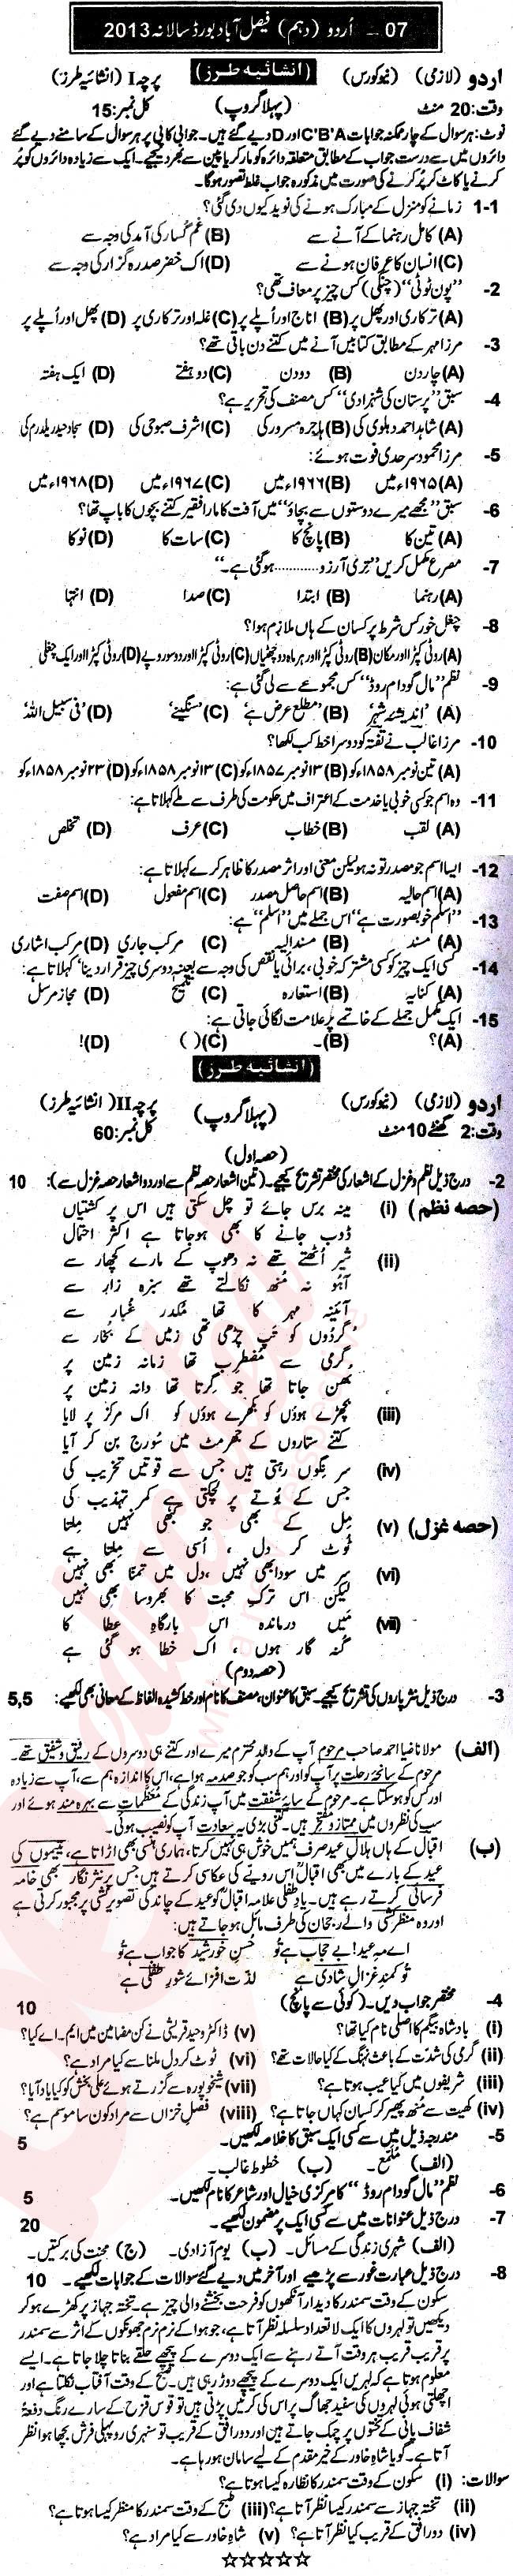 07 - اردو (دہم) فیصل آباد بورڈ سالانہ 2013
اردو (لازمی) (نیو کورس) (انشائیہ طرز) پرچہ I (انشائیہ طرز)
وقت: 20 منٹ (پہلا گروپ) کل نمبر: 15
نوٹ: ہر سوال کے چار ممکنہ جوابات C'B'A اور D دیے گئے ہیں۔ جوابی کاپی پر ہر سوال کے سامنے دیے گئے
دائروں میں سے درست جواب کے مطابق متعلقہ دائرہ کو مارکر یا پین سے بھر دیجیے۔ ایک سے زیادہ دائروں کو پُر
کرنے یا کاٹ کر پُر کرنے کی صورت میں مذکورہ جواب غلط تصور ہوگا۔
1-1 زمانے کو منزل کے مبارک ہونے کی نوید کیوں دی گئی؟
(A) کامل رہنما کے آنے سے (B) غم گُسار کی آمد کی وجہ سے
(C) انسان کا عرفان ہونے سے (D) اک خضرِ صدرہ گزار کی وجہ سے
2- "پون ٹوٹی" (چنگی) کس چیز پر معاف تھی؟
(A) ترکاری اور پھل پر (B) اناج اور اُپلے پر (C) غلہ اور ترکاری پر (D) پھل اور اُپلے پر
3- مرزا مہر کے مطابق کتابیں آنے میں کتنے دن باقی تھے؟
(A) چار دن (B) دو دن (C) دو ہفتے (D) ایک ہفتہ
4- سبق "پرستان کی شہزادی" کس مصنف کی تحریر ہے؟
(A) شاہد احمد دہلوی کی (B) ہاجرہ مسرور کی (C) اشرف صبوحی کی (D) سجاد حیدر یلدرم کی
5- مرزا محمود سرحدی فوت ہوئے:
(A) ۱۹۶۵ء میں (B) ۱۹۶۶ء میں (C) ۱۹۶۷ء میں (D) ۱۹۶۸ء میں
6- سبق "مجھے میرے دوستوں سے بچاؤ" میں آفت کا مارا فقیر کتنے بچوں کا باپ تھا؟
(A) تین کا (B) پانچ کا (C) سات کا (D) نو کا
7- مصرع مکمل کریں "تری آرزو ............ ہوگئی ہے۔"
(A) رہنما (B) ابتدا (C) صدا (D) انتہا
8- چغل خور کس شرط پر کسان کے ہاں ملازم ہوا؟
(A) روٹی کپڑا اور مکان (B) روٹی کپڑا اور ہر ماہ دو چھٹیاں (C) روٹی کپڑا اور دو سو روپے (D) روٹی کپڑا اور ایک چغلی
9- نظم "مال گودام روڈ" کس مجموعے سے لی گئی ہے:
(A) 'اندیشۂ شہر' (B) 'مطلع عرض ہے' (C) 'سنگینے' (D) 'فی سبیل اللہ'
10- مرزا غالب نے تفتہ کو دوسرا خط کب لکھا؟
(A) تین نومبر ۱۸۵۸ء کو (B) ۱۳ نومبر ۱۸۵۷ء کو (C) ۱۳ نومبر ۱۸۵۸ء کو (D) ۲۳ نومبر ۱۸۵۸ء کو
11- وہ اسم جو کسی خوبی یا خدمت کے اعتراف میں حکومت کی طرف سے ملے کہلاتا ہے:
(A) لقب (B) خطاب (C) عرف (D) تخلص
12- ایسا اسم جو مصدر تو نہ ہو لیکن معنی اور اثر مصدر کا ظاہر کرے کہلاتا ہے:
(A) اسم حالیہ (B) اسم حاصل مصدر (C) اسم مفعول (D) اسم صفت
13- "اسلم خوبصورت ہے" اس جملے میں "اسلم" ہے:
(A) مسند (B) مسند الیہ (C) مرکب جاری (D) مرکب اشاری
14- کسی ایک چیز کو کسی مشترکہ خوبی، برائی یا نقص کی وجہ سے بعینہ دوسری چیز قرار دینا' کہلاتا ہے:
(A) کنایہ (B) استعارہ (C) تلمیح (D) مجاز مرسل
15- ایک مکمل جملے کے خاتمے پر علامت لگائی جاتی ہے:
(A) ؟ (B) ۔ (C) ( ) (D) !
(انشائیہ طرز)
اردو (لازمی) (نیو کورس) پرچہ II (انشائیہ طرز)
وقت: 2 گھنٹے 10 منٹ (پہلا گروپ) کل نمبر: 60
(حصہ اول)
2- درج ذیل نظم و غزل کے اشعار کی مختصر تشریح کیجیے۔ (تین اشعار حصہ نظم سے اور دو اشعار حصہ غزل سے): 10
(حصہ نظم) (i) مینہ برس جائے تو چل سکتی ہیں اس پر کشتیاں
ڈوب جانے کا بھی ہوجاتا ہے اکثر احتمال
(ii) شیر اُٹھتے تھے نہ دھوپ کے مارے کچھار سے
آہُو نہ مُنھ نکالتے تھے سبزہ زار سے
آئینہ مہر کا تھا مکدر غبار سے
گردُوں کو تپ چڑھی تھی زمیں کے بخار سے
گرمی سے مُضطرِب تھا زمانہ زمین پر
بھُن جاتا تھا جو گرتا تھا دانہ زمین پر
(iii) بچھڑے ہوؤں کو بکھرے ہوؤں کو اک مرکز پر لایا
کتنے ستاروں کے جھرمٹ میں سورج بن کر آیا
(iv) سرنگوں رہتی ہیں جس سے قوتیں تخریب کی
جس کے بُوتے پر لچکتی ہے کمر تہذیب کی
(حصہ غزل) (v) مِل کے بھی جو کبھی نہیں مِلتا
ٹوٹ کر دل، اُسی سے مِلتا ہے
(vi) سر میں سودا بھی نہیں، دل میں تمنّا بھی نہیں
لیکن اس ترکِ محبت کا بھروسا بھی نہیں
(vii) مَیں درماندہ اس بارگاہِ عطا کا
گنہ گار ہوں، اک خطا ہو گئی ہے
(حصہ دوم)
3- درج ذیل نثر پاروں کی تشریح کیجیے۔ سبق کا عنوان، مصنف کا نام اور خط کشیدہ الفاظ کے معانی بھی لکھیے: 5,5
(الف) مولانا ضیا احمد صاحب مرحوم آپ کے والدِ محترم میرے اور کتنے ہی دوسروں کے رفیق و شفیق تھے۔
مرحوم کے سانحۂ رحلت پر آپ کو اور ہم سب کو جو صدمہ ہوا ہے، اس کا اندازہ ہم سے، آپ سے زیادہ
اور کس کو ہوسکتا ہے۔ مرحوم کے سایۂ شفقت میں آپ زندگی کے مُعظّمات سے بہرہ مند ہوئے اور
سب کی نظروں میں ممتاز و مفتخر ہیں۔ کتنی بڑی یہ سعادت آپ کو نصیب ہوئی۔
(ب) اقبال کے ہاں ہلالِ عید صرف ہمیں خوش ہی نہیں کرتا، ہماری ہنسی بھی اڑاتا ہے، یتیموں کی
عید کے بارے میں بھی اقبالؒ اس رویے کی عکاسی کرتے ہیں جس پر نثر نگار بھی خامہ
فرسائی کرتے رہے ہیں۔ یادِ طفلی علامہ اقبالؒ کو عید کے چاند کی تصویر کشی پر مجبور کرتی ہے
اور وہ منظر کشی والے رجحان کی طرف مائل ہو جاتے ہیں:
اے مہِ عید! بے حجاب ہے تُو حُسنِ خورشید کا جواب ہے تُو
تُو کمندِ غزالِ شادی ہے لذت افزائے شورِ طفلی ہے
4- مختصر جواب دیں۔ (کوئی سے پانچ) 10
(i) بادشاہ بیگم کا اصلی نام کیا تھا؟ (v) ڈاکٹر وحید قریشی نے کن مضامین میں ایم۔اے کیا؟
(ii) گرمی کی شدّت کے باعث نہنگ کے کیا حالات تھے؟ (vi) ٹوٹ کر دل ملنا سے کیا مراد ہے؟
(iii) شریفوں میں کیا عیب ہوتا ہے؟ (vii) شیخوپورہ سے گزرتے ہوئے علی بخش کو کیا یاد آیا؟
(iv) کھیت سے مُنھ پھیر کر کسان کہاں جاتا ہے؟ (viii) فصلِ خزاں سے مراد کون سا موسم ہے؟
5- مندرجہ ذیل میں سے کسی ایک سبق کا خلاصہ لکھیں۔
(الف) مُلمّع۔ (ب) خطوط غالب۔ 5
6- نظم "مال گودام روڈ" کا مرکزی خیال اور شاعر کا نام لکھیں۔ 5
7- درج ذیل عنوانات میں سے کسی ایک پر مضمون لکھیے۔ 20
(الف) شہری زندگی کے مسائل۔ (ب) یوم آزادی۔ (ج) محنت کی برکتیں۔
8- درج ذیل عبارت غور سے پڑھیے اور آخر میں دیے گئے سوالات کے جوابات لکھیے۔ 10
سکون کے وقت سمندر کا دیدار آنکھوں کو فرحت بخشنے والی چیز ہے۔ تختہ جہاز پر کھڑے ہو کر
دیکھیں تو لہروں کا ایک لا تعداد سلسلہ نظر آتا ہے، جو ہوا کے نرم نرم جھونکوں کے اثر سے سمندر
پر قریب قریب ہر وقت آتے رہنے سے ایک دوسرے کے پیچھے حلقے بناتا چلا جاتا ہے۔ ایسے
معلوم ہوتا ہے کہ لہریں ایک دوسرے کے پیچھے دوڑ رہی ہیں۔ صبح کے وقت آفتاب نکلتا ہے اور
اچھلتی ہوئی لہروں کی سفید جھاگ پر اس کی کرنیں پڑتی ہیں تو قوس قزح کے سارے رنگ دفعۃً
شفاف پانی کے تختوں پر چمک جاتے ہیں اور دور افق کے قریب تو سنہری روپہلی فرش بچھا ہوا نظر
آتا ہے۔ گویا شاہِ خاور کے خیر مقدم کے لیے سامان ہو رہا ہے۔
سوالات: (i) سکون کے وقت سمندر کا نظارہ کیسا ہوتا ہے؟
(ii) تختہ جہاز سے سمندر کیسا نظر آتا ہے؟ (iii) صبح کے وقت سمندر کا منظر کیسا ہوتا ہے؟
(iv) دور افق کے قریب کیا نظر آتا ہے؟ (v) شاہِ خاور سے کیا مراد ہے؟
☆☆☆☆☆